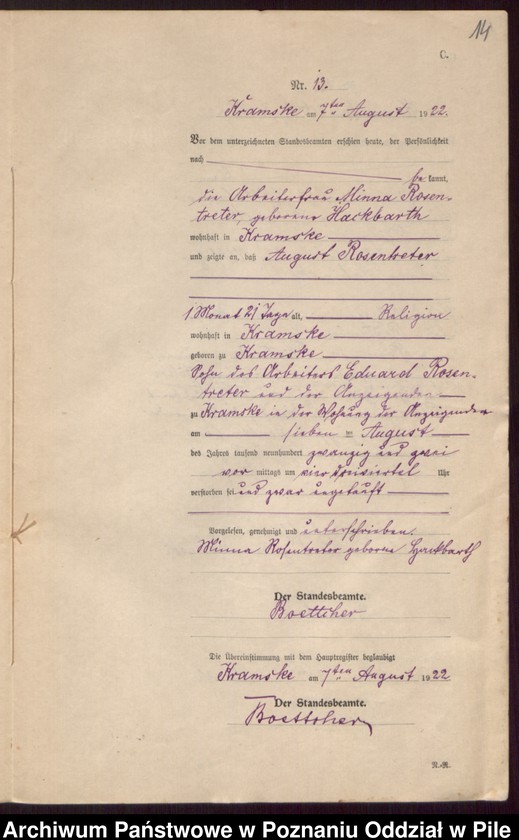 14
C.
Nr. 13.
Kramske am 7ten August 1922.
Vor dem unterzeichneten Standesbeamten erschien heute, der Persönlichkeit
nach
be kannt,
die Arbeiterfrau Minna Rosen-
treter, geborene Hackbarth
wohnhaft in Kramske
und zeigte an, daß August Rosentreter
1 Monat 21 Tage alt, Religion
wohnhaft in Kramske
geboren zu Kramske
Sohn des Arbeiters Eduard Rosen-
treter und der Anzeigenden
zu Kramske in der Wohnung der Anzeigenden
am sieben ten August
des Jahres tausend neunhundert zwanzig und zwei
vor mittags um vier dreiviertel Uhr
verstorben sei und zwar ungetauft
Vorgelesen, genehmigt und unterschrieben.
Minna Rosentreter geborne Hackbarth
Der Standesbeamte.
Boettcher
Die Übereinstimmung mit dem Hauptregister beglaubigt
Kramske am 7ten August 1922
Der Standesbeamte.
Boettcher
N.-R.
Archiwum Państwowe w Poznaniu Oddział w Pile